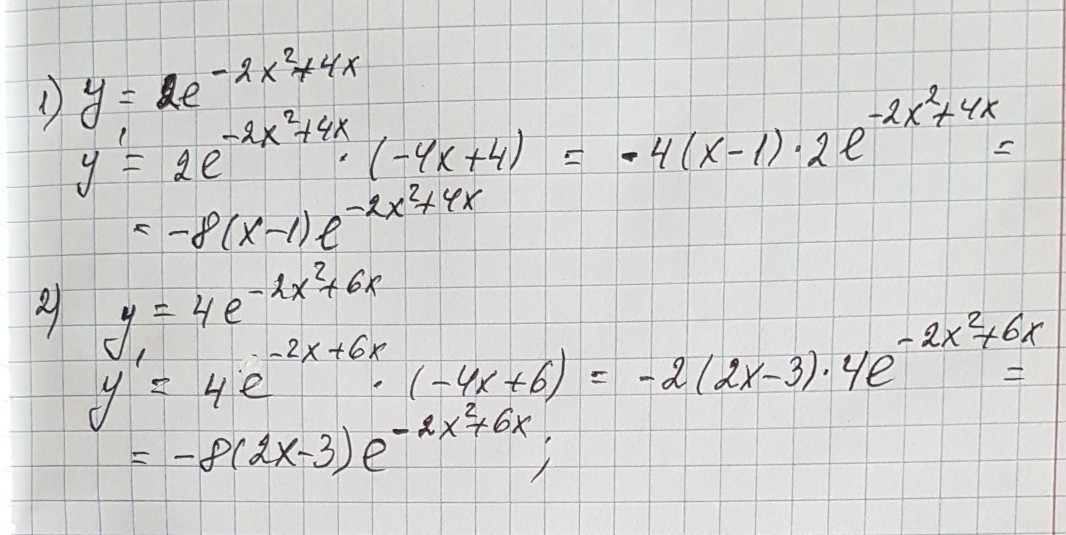 1) y = 2e^{-2x^2+4x}
y' = 2e^{-2x^2+4x} · (-4x+4) = -4(x-1)·2e^{-2x^2+4x} =
= -8(x-1)e^{-2x^2+4x}
2) y = 4e^{-2x^2+6x}
y' = 4e^{-2x+6x} · (-4x+6) = -2(2x-3)·4e^{-2x^2+6x} =
= -8(2x-3)e^{-2x^2+6x};